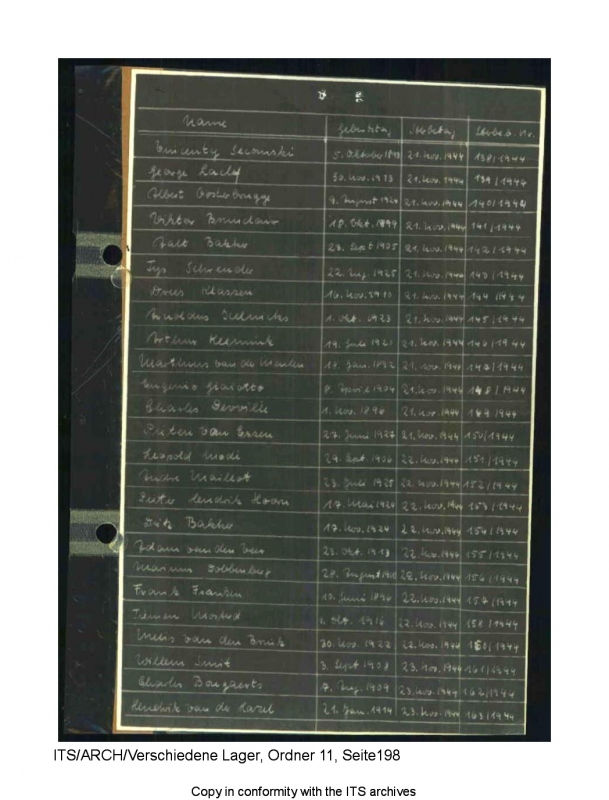 Name Geburtstag Sterbetag Sterbeb. Nr.
5. Oktober 21. Nov. 1944 138/1944
George 30. Nov. 1913 21. Nov. 1944 139/1944
Albert Oosterbrugge 9. August 21. Nov. 1944 140/1944
Viktor 18. Okt. 1899 21. Nov. 1944 141/1944
Bakker 23. Sept 1905 21. Nov. 1944 142/1944
Schreuder 22. Aug. 1925 21. Nov. 1944 143/1944
Klassen 16. Nov. 1910 21. Nov. 1944 144/1944
1. Okt. 1923 21. Nov. 1944 145/1944
19. Juli 1921 21. Nov. 1944 146/1944
Martinus van der Meulen 14. Jan. 1892 21. Nov. 1944 147/1944
Eugenio 8. April 1904 21. Nov. 1944 148/1944
Charles Derville 1. Nov. 1896 21. Nov. 1944 149/1944
van Essen 27. Juni 1927 21. Nov. 1944 150/1944
Leopold 29. Sept. 1906 22. Nov. 1944 151/1944
Maillot 23. Juli 1925 22. Nov. 1944 152/1944
Pieter Hendrik Hoorn 17. Mai 1924 22. Nov. 1944 153/1944
Bakker 17. Nov. 1924 22. Nov. 1944 154/1944
Adam van der Veer 23. Okt. 1913 22. Nov. 1944 155/1944
Marinus Dobbenberg 28. August 22. Nov. 1944 156/1944
Frank Franken 10. Juni 1896 22. Nov. 1944 157/1944
1. Okt. 1916 22. Nov. 1944 158/1944
van den Brink 30. Nov. 1922 22. Nov. 1944 160/1944
Willem Smit 3. Sept 1908 23. Nov. 1944 161/1944
Charles Bongaerts 7. Aug. 1909 23. Nov. 1944 162/1944
Hendrik van de 21. Jan. 1914 23. Nov. 1944 163/1944
ITS/ARCH/Verschiedene Lager, Ordner 11, Seite198
Copy in conformity with the ITS archives